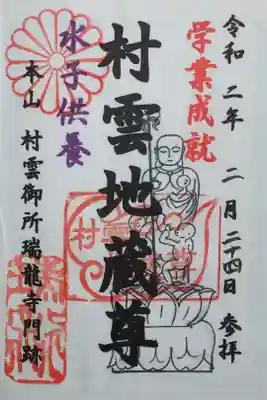 令和二年 二月二十四日 参拝
学業成就
村雲地蔵尊
水子供養
本山 村雲御所瑞龍寺門跡
村